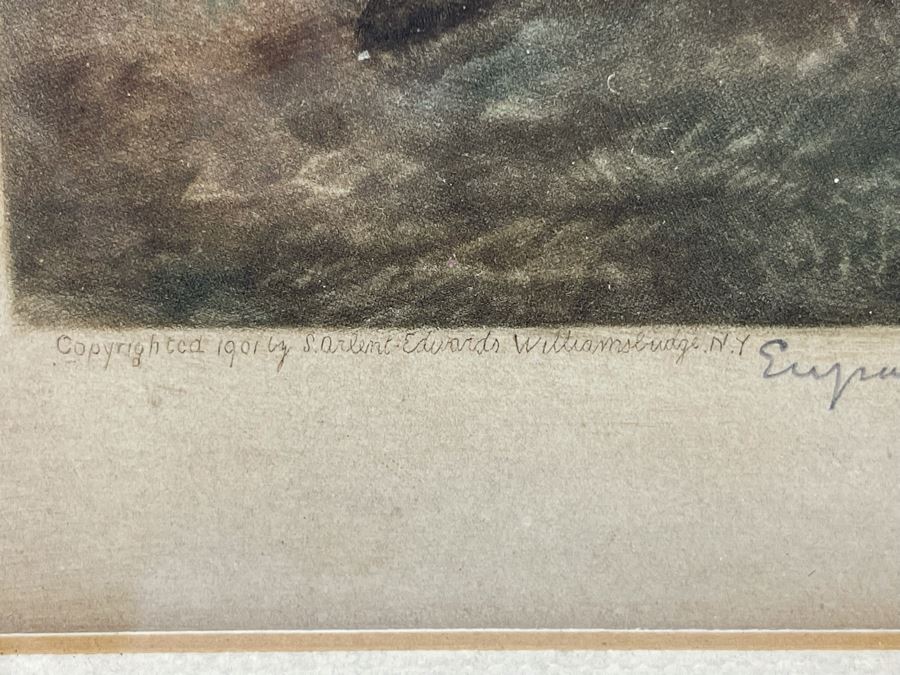 Copyrighted 1901 by S. Arlent-Edwards Williamsbridge. N.Y